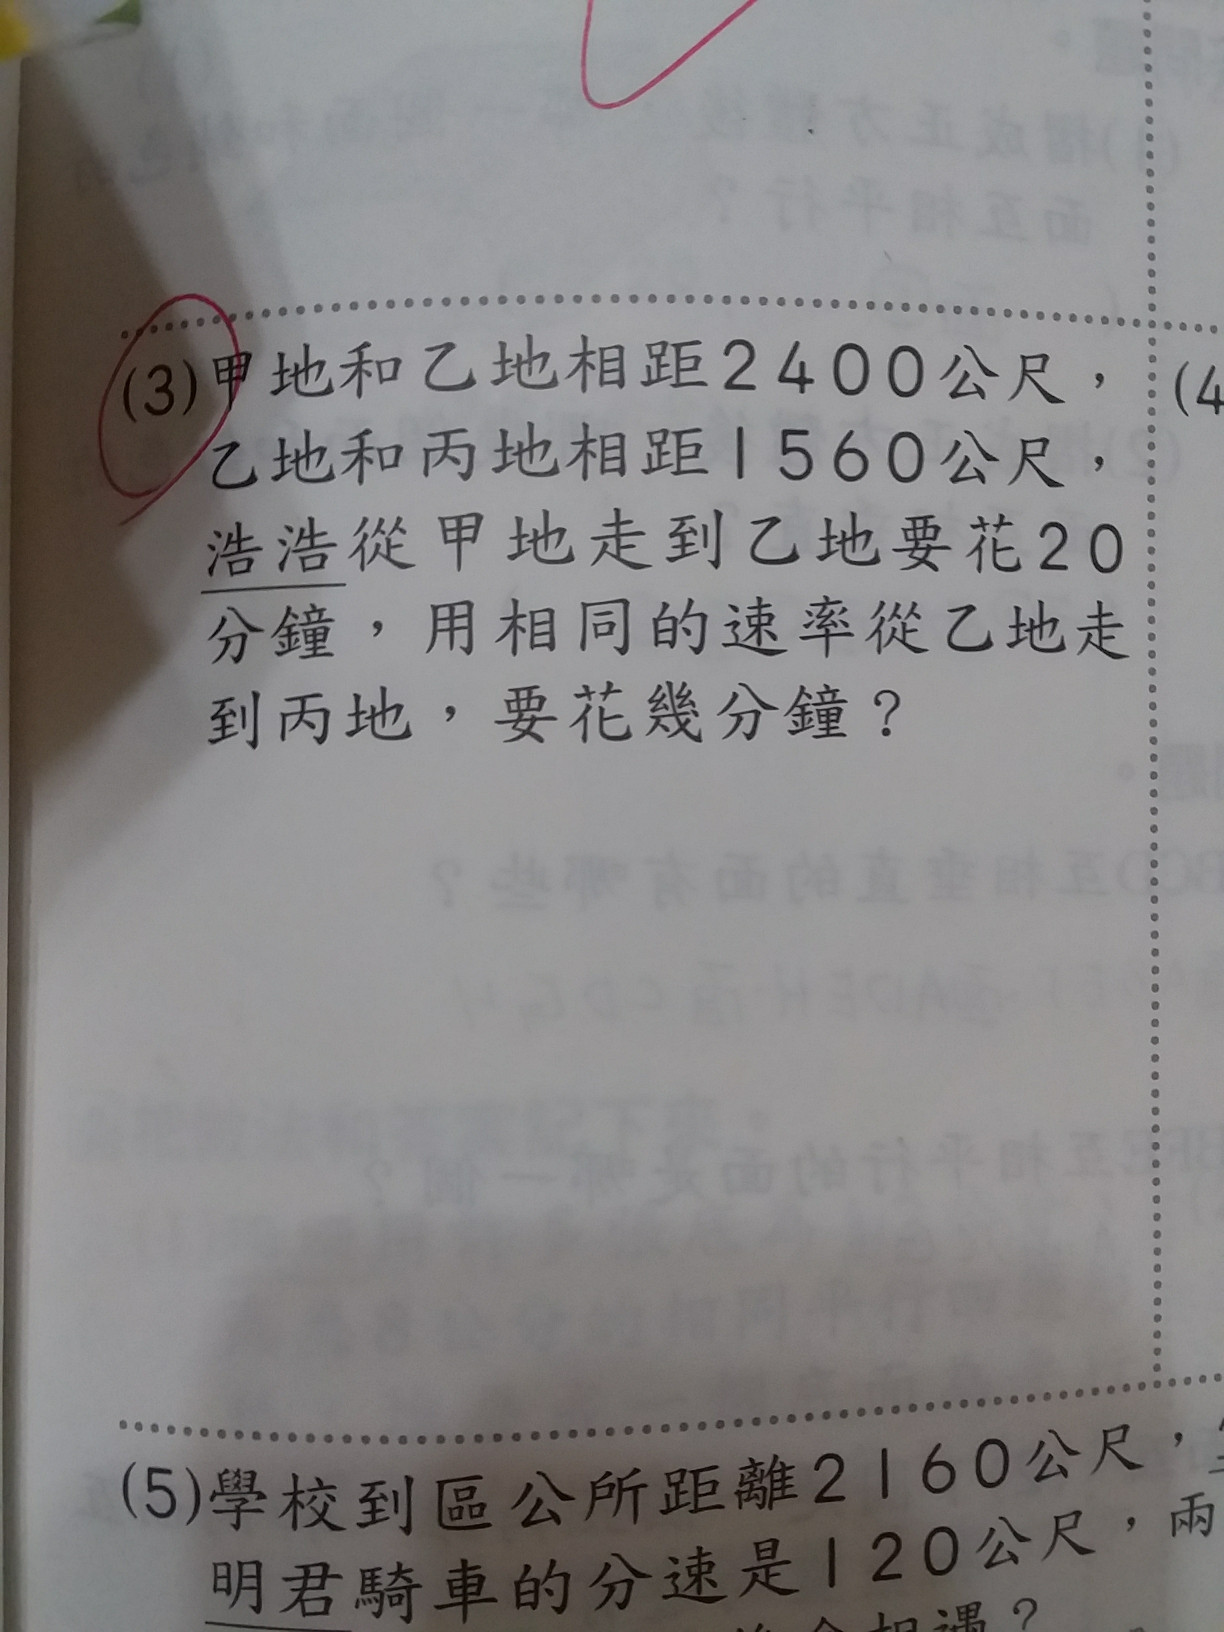 (3)甲地和乙地相距2400公尺，
乙地和丙地相距1560公尺，
浩浩從甲地走到乙地要花20
分鐘，用相同的速率從乙地走
到丙地，要花幾分鐘？
(4
(5)學校到區公所距離2160公尺，
明君騎車的分速是120公尺，兩
相遇？